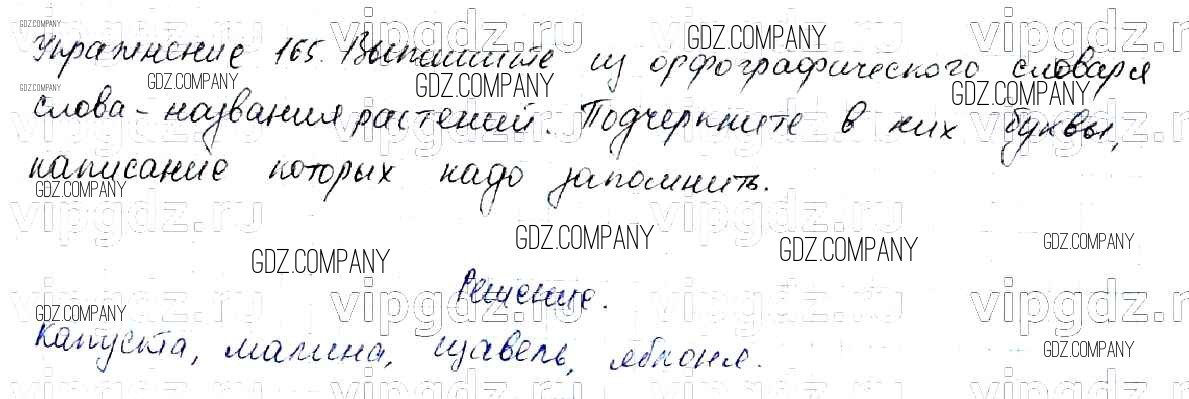 Упражнение 165. Выпишите из орфографического словаря
слова - названия растений. Подчеркните в них буквы,
написание которых надо запомнить.
Решение.
Капуста, малина, щавель, яблоня.
GDZ.COMPANY
vipgdz.ru